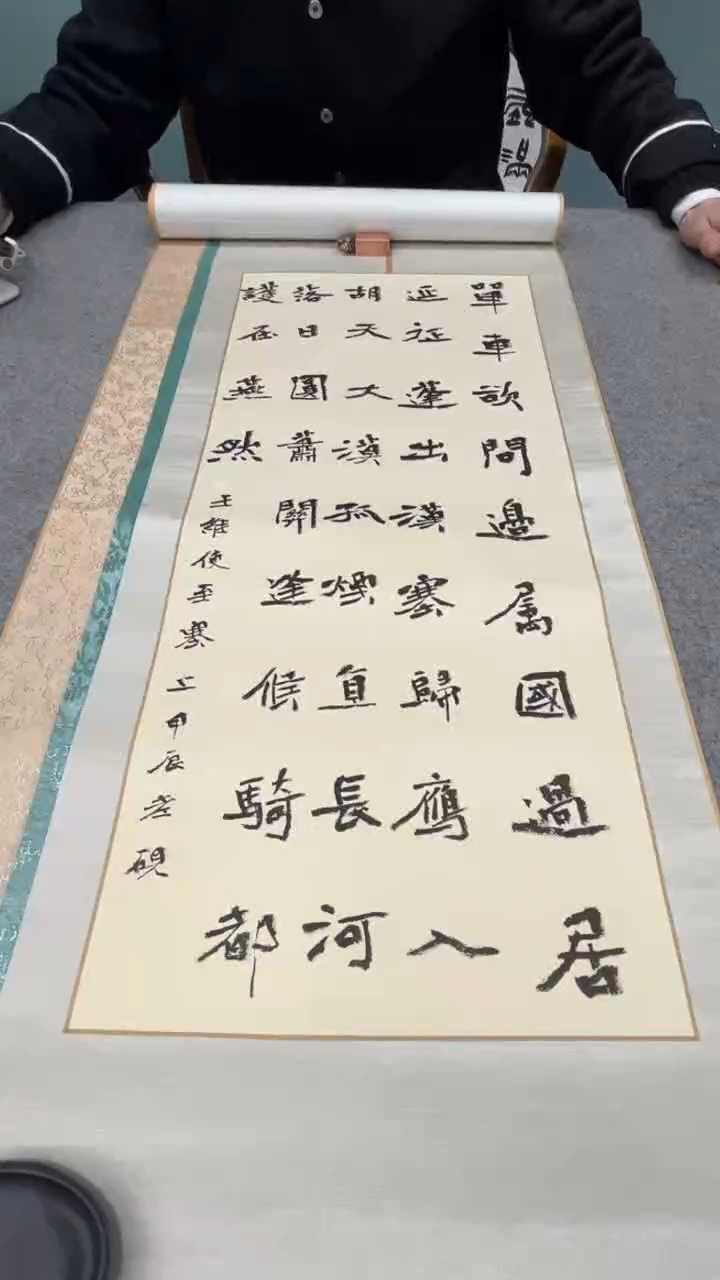 單車欲問邊属國過居
延征蓬出漢塞歸鴈入
胡天大漠孤煙直長河
落日圓蕭關逢候騎都
護在燕然
王維使至塞上甲辰老硯